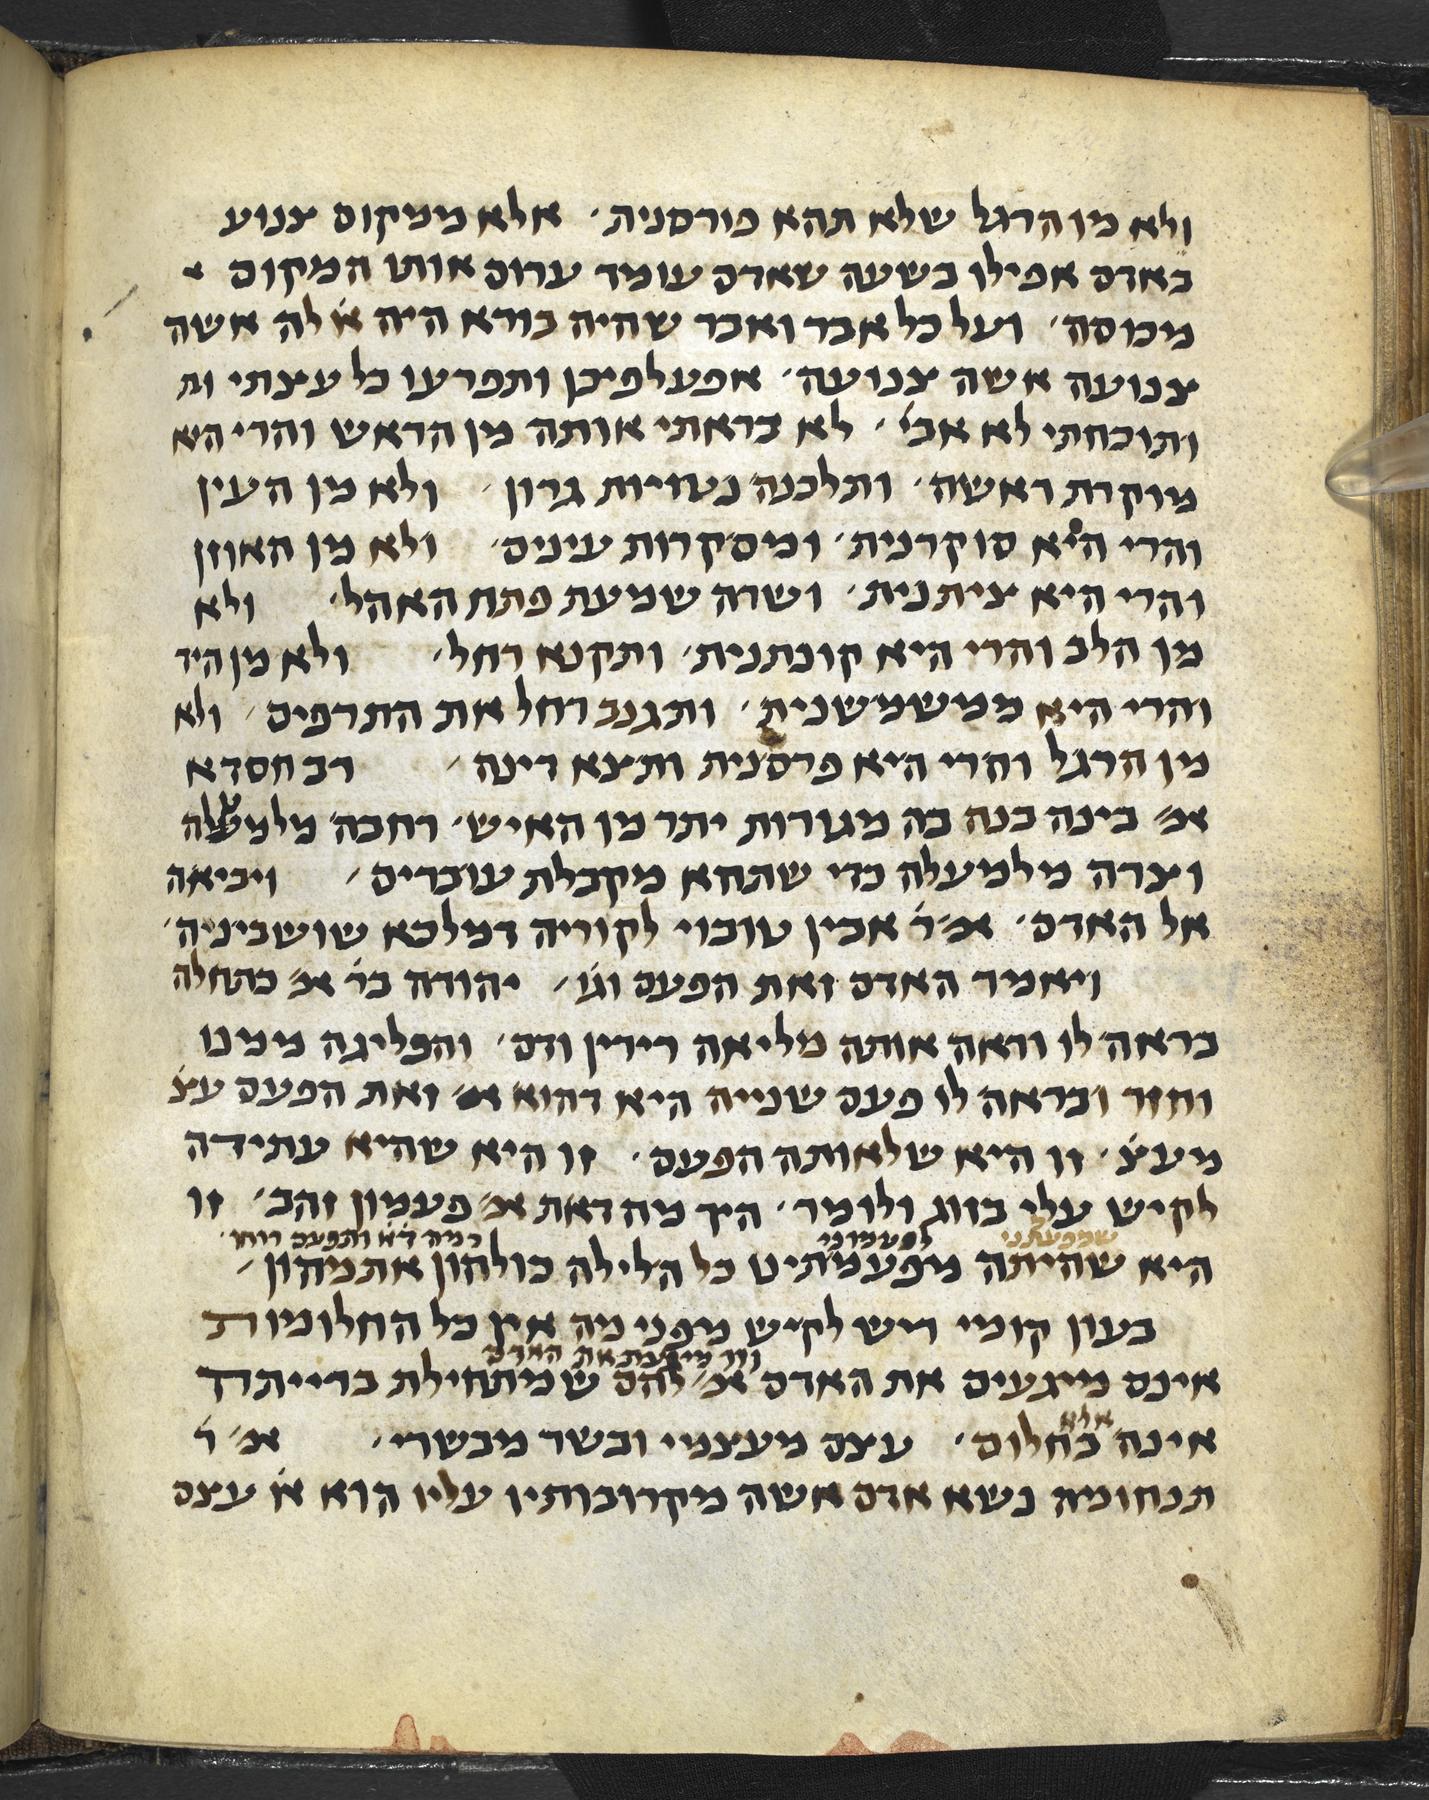 ולא מן הרגל שלא תהא פורסנית׳ אלא ממקום צנוע
באדם אפילו בשעה שאדם עומד ערום אותו המקום
מכוסה׳ ועל כל אבר ואבר שהיה בורא היה או׳ לה אשה
צנועה אשה צנועה׳ אפעלפיכן ותפרעו כל עצתי ות
ותוכחתי לא אבי׳ לא בראתי אותה מן הראש והרי היא
מוקרת ראשה׳ ותלכנה נטויות גרון׳ ולא מן העין
והרי היא סוקרנית׳ ומסקרות עינים׳ ולא מן האוזן
והרי היא ציתנית׳ ושרה שמעת פתח האהל׳ ולא
מן הלב והרי היא קונתנית׳ ותקנא רחל׳ ולא מן היד
והרי היא ממשמשנית׳ ותגנב רחל את התרפים׳ ולא
מן הרגל והרי היא פרסנית ותצא דינה׳ רב חסדא
אמ׳ בינה בנה בה מגורות יתר מן האיש׳ רחבה מלמטלה
וצרה מלמעלה כדי שתהא מקבלת עוברים׳ ויביאה
אל האדם׳ אמ׳ ר׳ אבין טובוי לקוריה דמלכא שושביניה׳
ויאמר האדם זאת הפעם וגו׳ יהודה בר׳ אמ׳ כתחלה
בראה לו וראה אותה מליאה רירין ודם׳ והפליגה ממנו
וחזר ובראה לו פעם שנייה היא דהוא אמ׳ זאת הפעם עצ׳
מעצ׳ זו היא שלאותה הפעם׳ זו היא שהיא עתידה
לקיש עלי בזוג ולומר׳ היך מה דאת אמ׳ פעמון זהב׳ זו
שמפעתני לפעמוני כמה ד׳א ותפעם רוחו׳
היא שהיתה מפעמתיט כל הלילה כולהון אתמהון׳
בעון קומי ריש לקיש מפני מה אין כל החלומות
וזו מיגעת את האדם
אינם מיגעים את האדם אמ׳ להם שמתחילת ברייתה
אלא
אינה בחלום׳ עצם מעצמי ובשר מבשרי׳ אמ׳ ר׳
תנחומה נשא אדם אשה מקרובותיו עליו הוא או׳ עצם